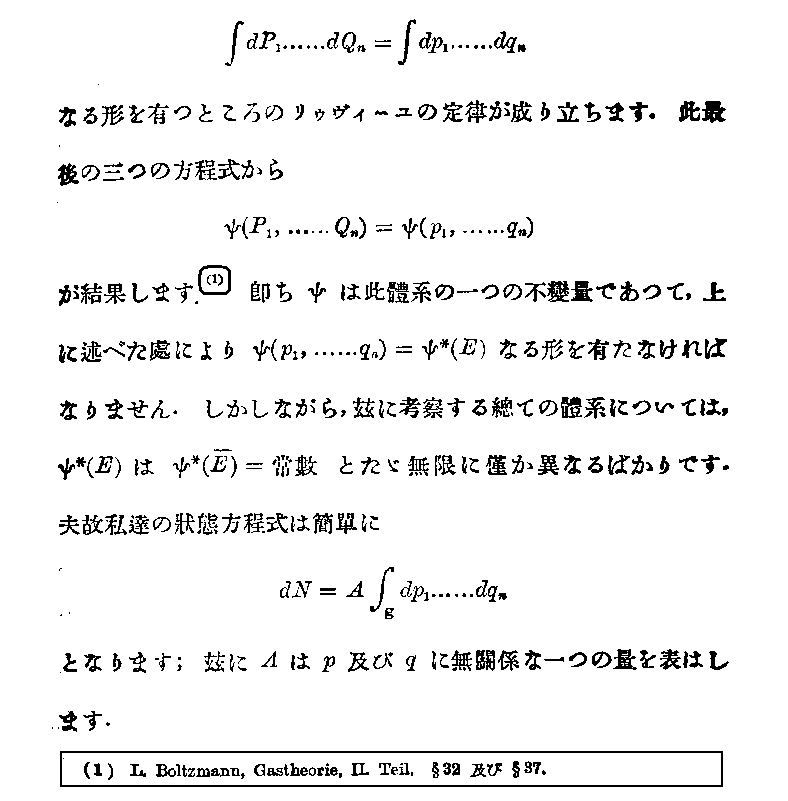 ∫dP₁……dQₙ = ∫dp₁……dqₙ
なる形を有つところのリゥヴィーユの定律が成り立ちます. 此最
後の三つの方程式から
ψ(P₁, ……Qₙ) = ψ(p₁, ……qₙ)
が結果します.(1) 卽ち ψ は此體系の一つの不變量であつて, 上
に述べた處により ψ(p₁, ……qₙ) = ψ*(E) なる形を有たなければ
なりません. しかしながら, 玆に考察する總ての體系については,
ψ*(E) は ψ*(E̅) = 常數 とたゞ無限に僅か異なるばかりです.
夫故私達の狀態方程式は簡單に
dN = A ∫g dp₁……dqₙ
となります; 玆に A は p 及び q に無關係な一つの量を表はし
ます.
(1) L. Boltzmann, Gastheorie, II. Teil. §32 及び §37.